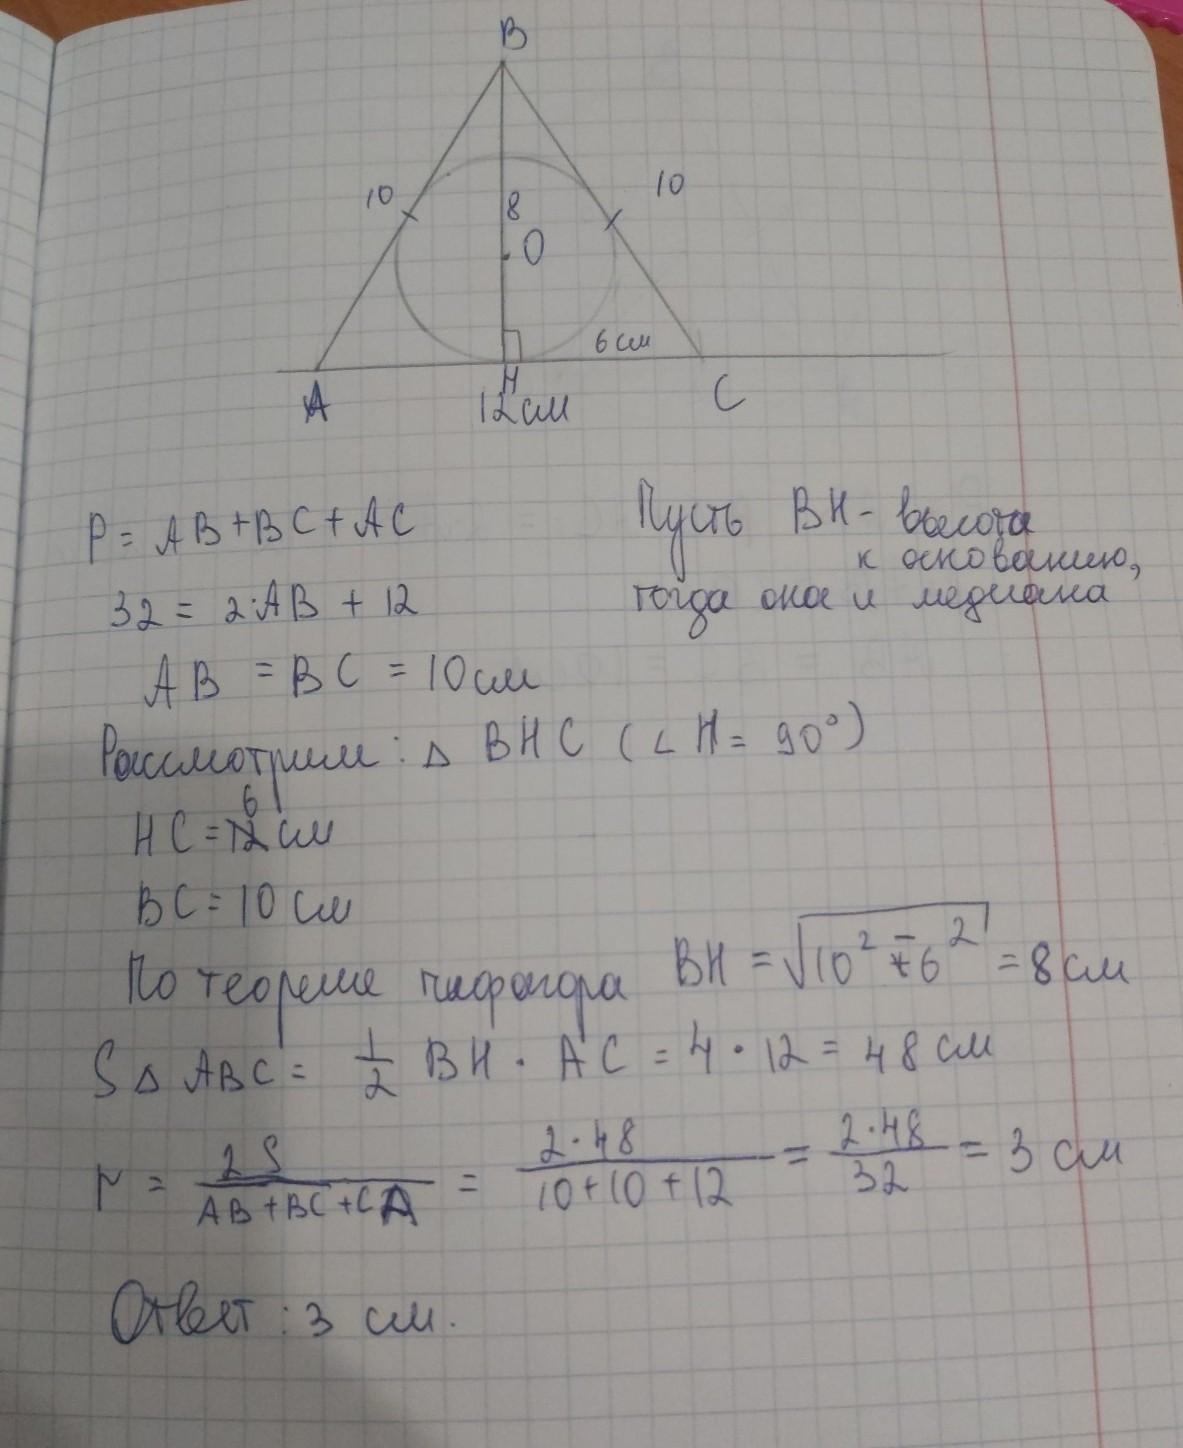 B
10
10
8
O
6 см
A
H
C
12 см
P = AB + BC + AC
Пусть BH - высота
к основанию,
тогда она и медиана
32 = 2·AB + 12
AB = BC = 10 см
Рассмотрим: △ BHC (∠ H = 90°)
HC = 6 см
BC = 10 см
По теореме пифагора BH = √(10² - 6²) = 8 см
S △ ABC = 1/2 BH · AC = 4 · 12 = 48 см
r = 2S/(AB + BC + CA) = 2·48/(10 + 10 + 12) = 2·48/32 = 3 см
Ответ: 3 см.